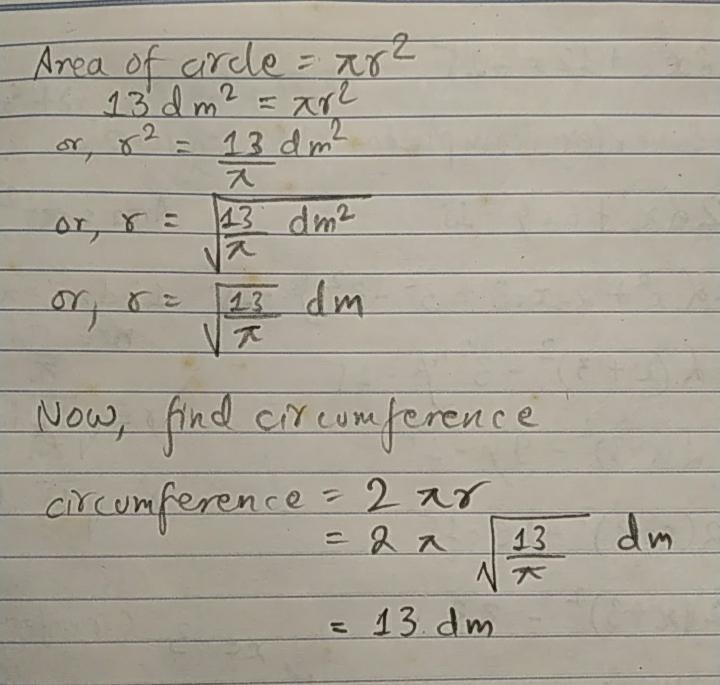 Area of circle = πr²
13 dm² = πr²
or, r² = 13/π dm²
or, r = √(13/π dm²)
or, r = √(13/π) dm
Now, find circumference
circumference = 2 πr
= 2 π √(13/π) dm
= 13 dm